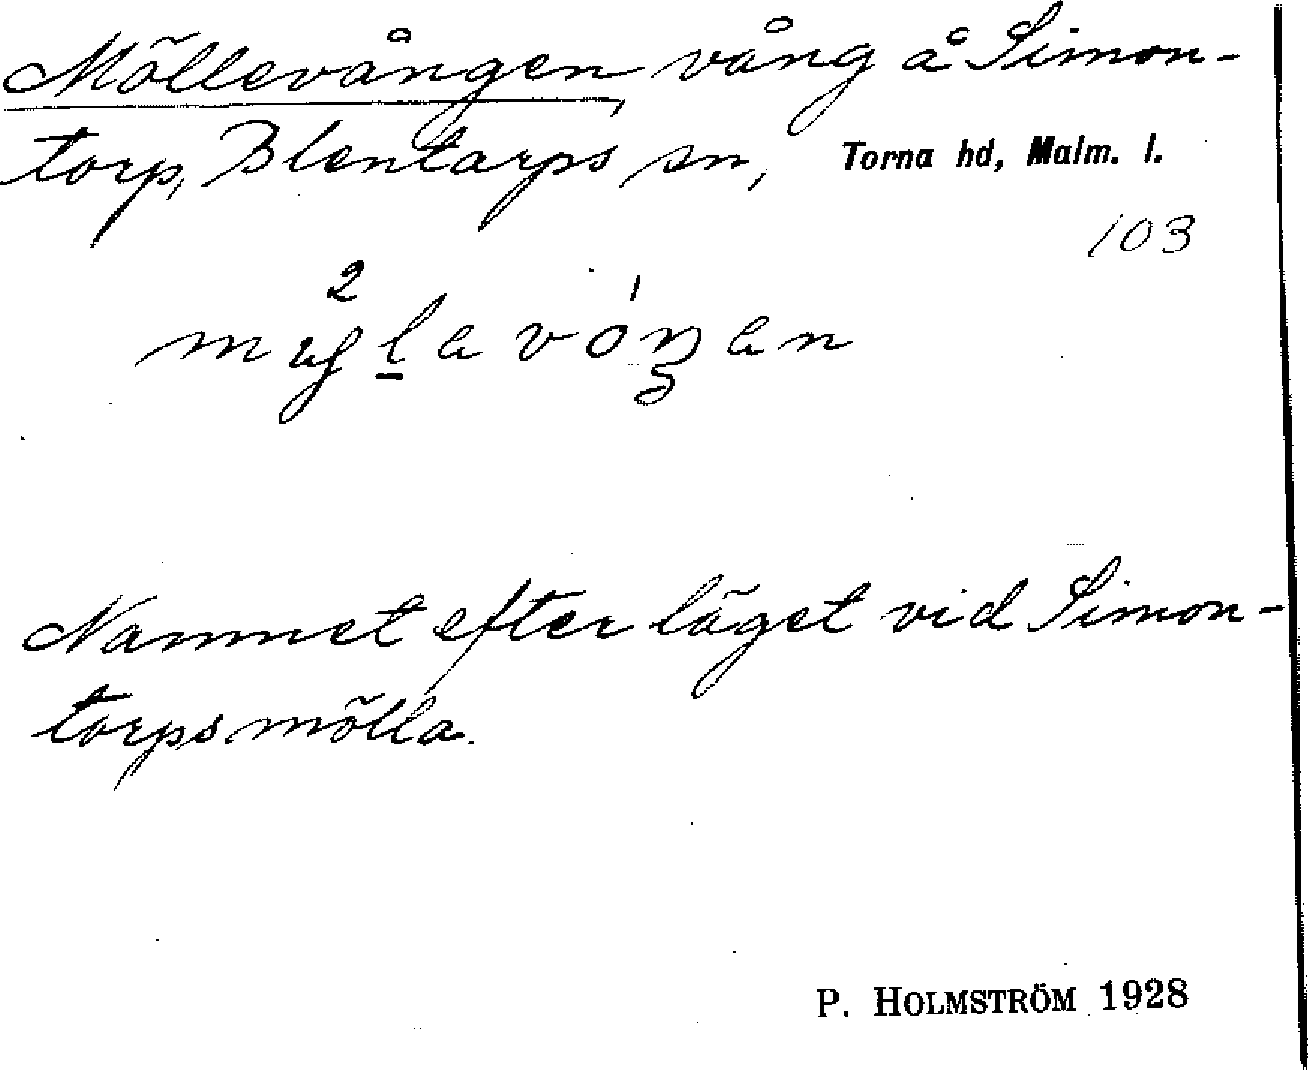 Möllevången, vång å Simon-
torp, Blentarps sn, Torna hd, Malm. l.
103
Namnet efter läget vid Simon-
torpsmölla.
P. HOLMSTRÖM 1928